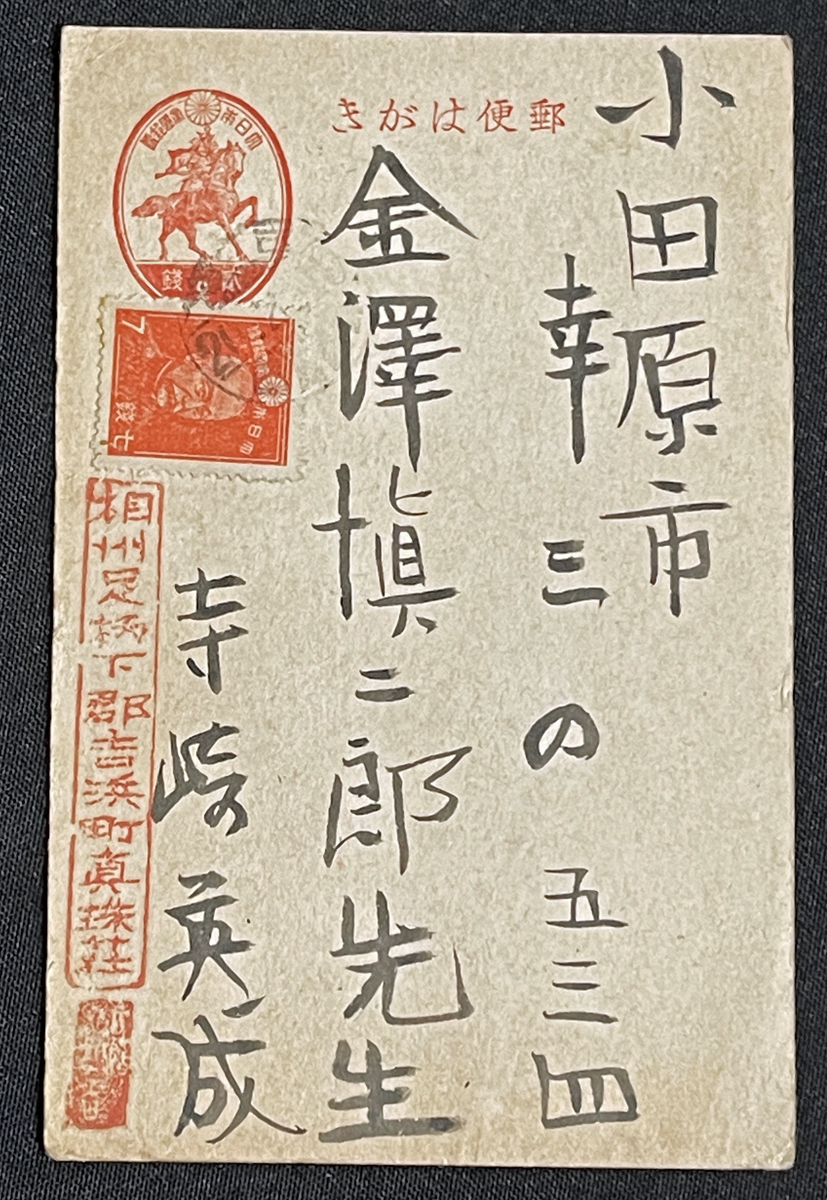 郵便はがき
小田原市
幸三の五三四
金澤愼二郎先生
寺崎英成
大日本帝國郵便
貳錢
大日本帝國郵便
7
七錢
相州足柄下郡吉浜町真珠荘